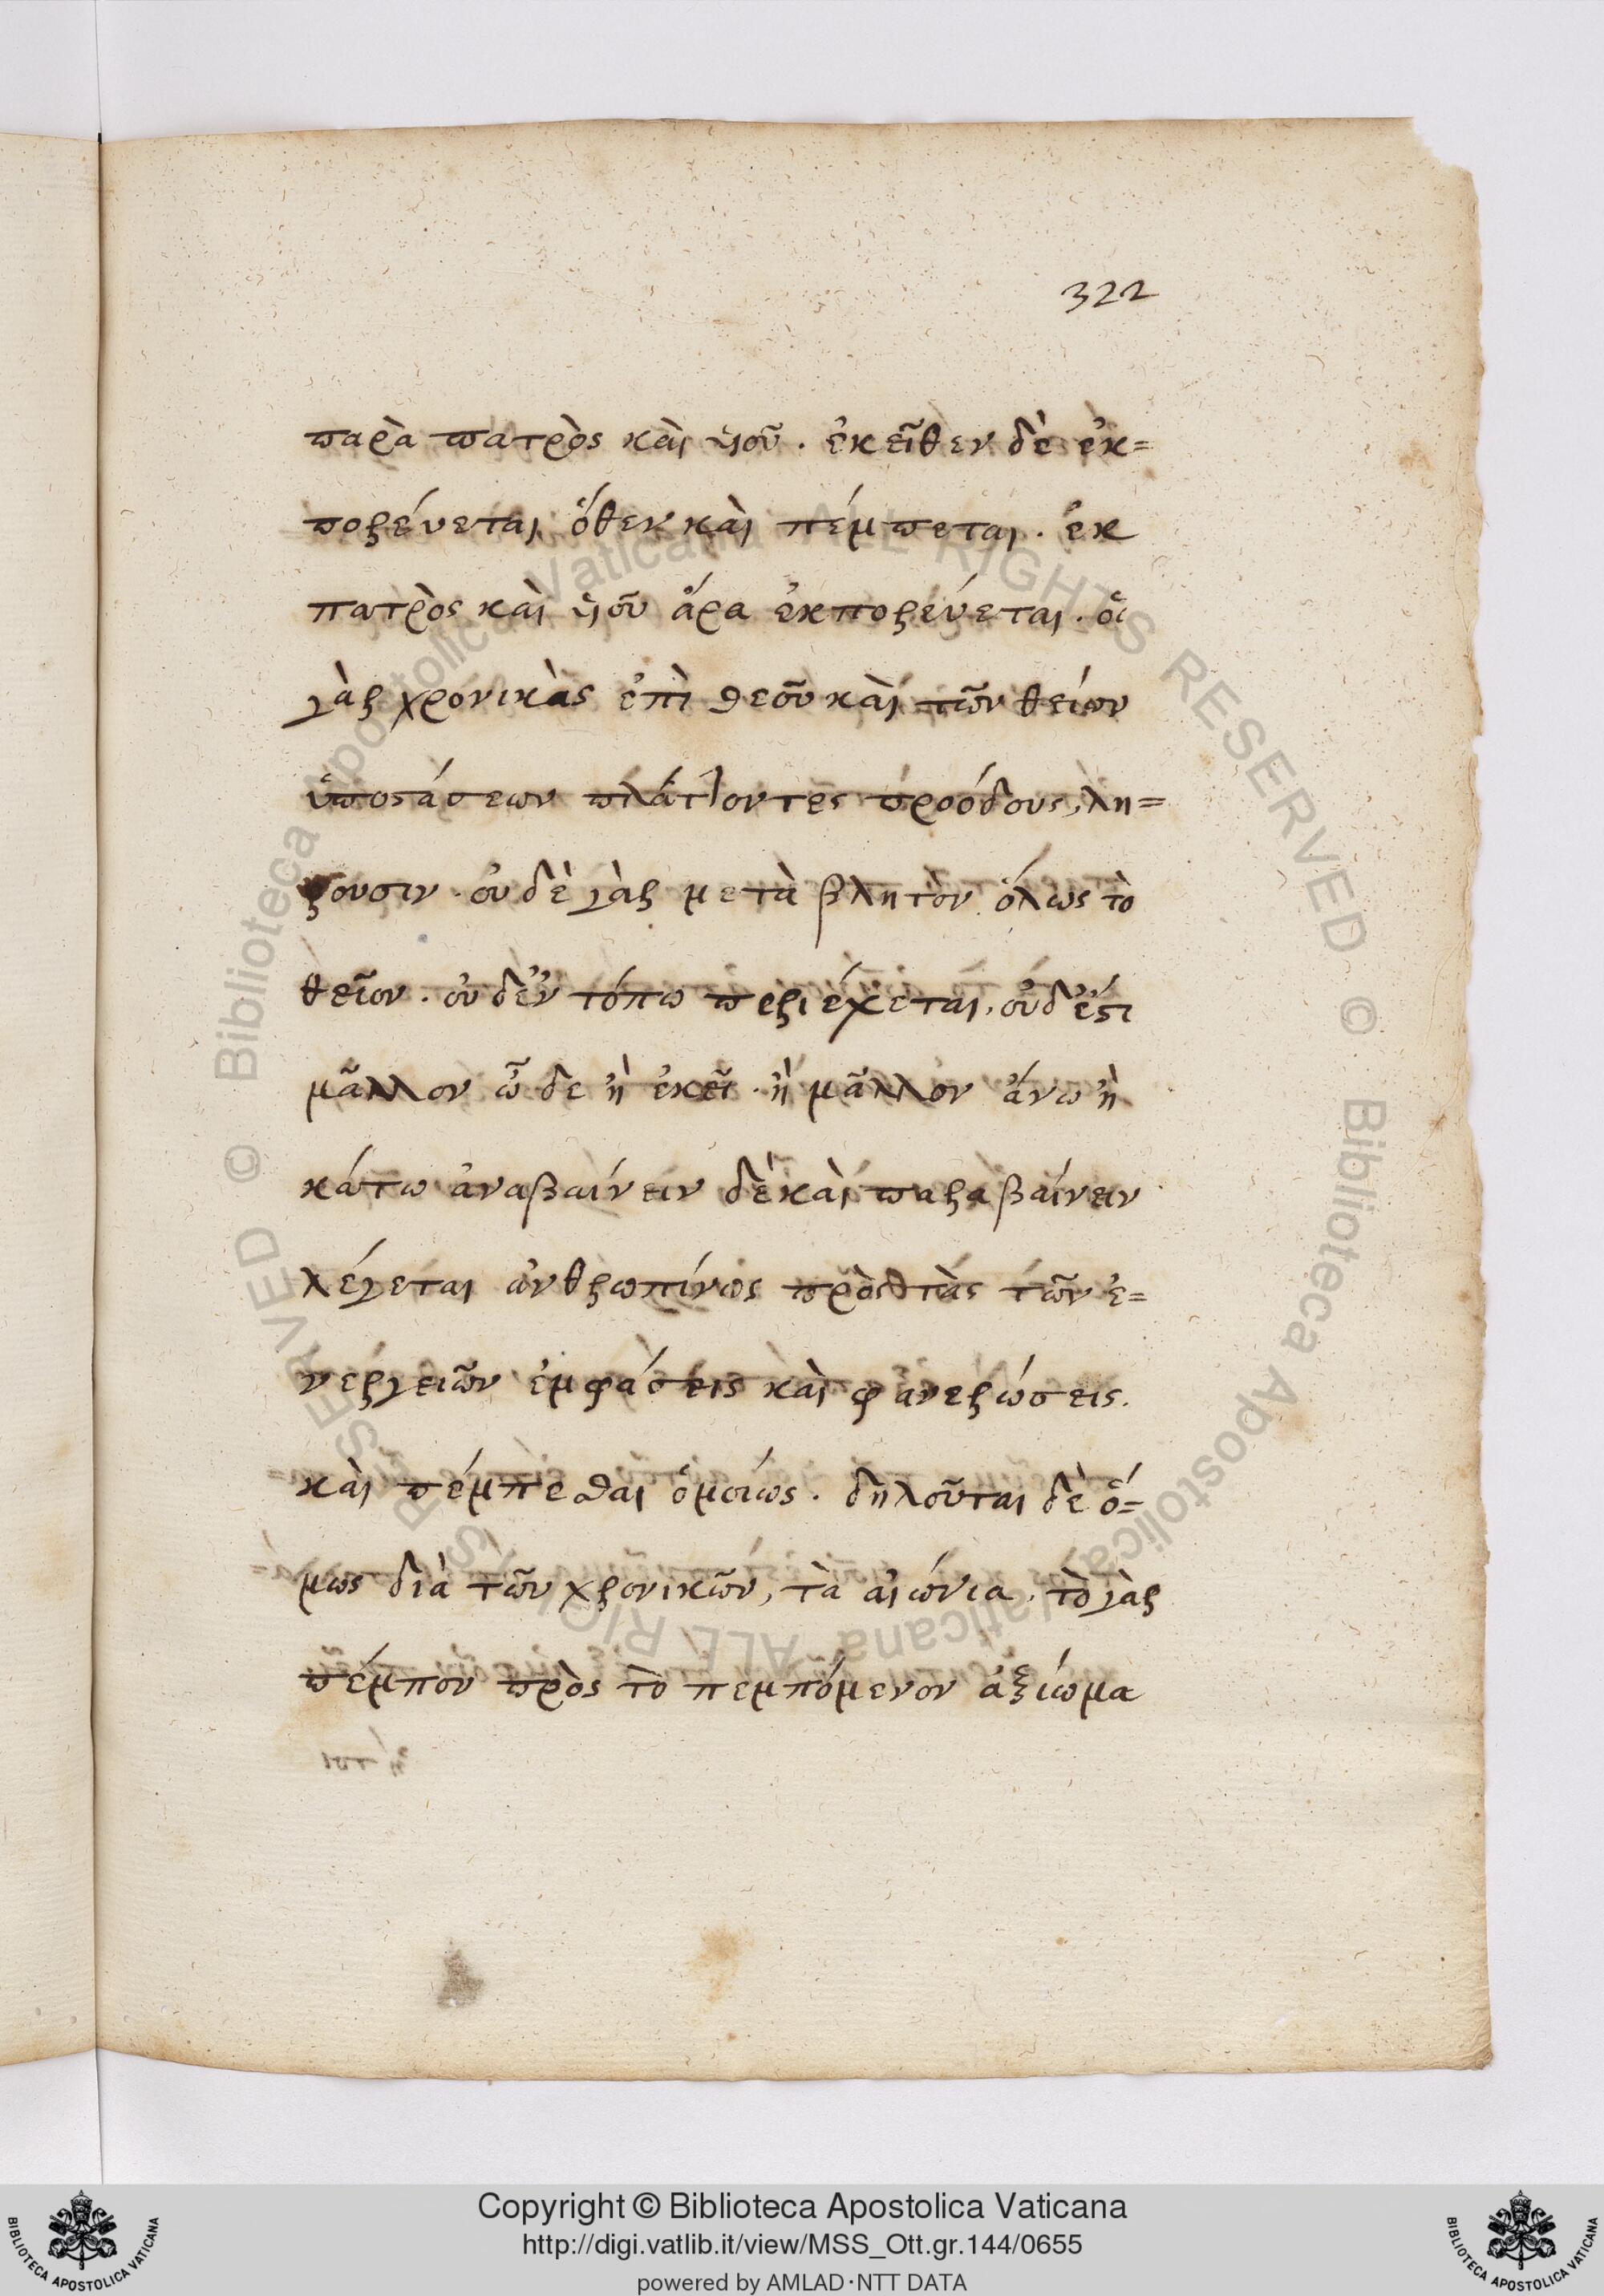 322
παρὰ πατρὸς καὶ ὑιοῦ. ἐκεῖθεν δὲ ἐκ=
πορεύεται ὅθεν καὶ πέμπεται. ἐκ
πατρὸς καὶ ὑιοῦ ἄρα ἐκπορεύεται. ὁι
γὰρ χρονικὰς ἐπὶ θεοῦ καὶ τῶν θείων
ὑποστάσεων πλάττοντες προόδους, λη=
ροῦσιν. οὐδὲ γὰρ μεταβλητὸν ὅλως τὸ
θεῖον. οὐδ' ἐν τόπω περιέχεται, οὐδ' ἔστι
μᾶλλον ὧδε ἢ ἐκεῖ. ἢ μᾶλλον ἄνω ἢ
κάτω ἀναβαίνειν δὲ καὶ παραβαίνειν
λέγεται ἀνθρωπίνως πρὸς τὰς τῶν ἐ=
νεργειῶν ἐμφάσεις καὶ φανερώσεις.
καὶ πέμπεσθαι ὁμοίως. δηλοῦται δὲ ὅ=
μως διὰ τῶν χρονικῶν, τὰ αἰώνια. τὸ γὰρ
πέμπον πρὸς τὸ πεμπόμενον ἀξίωμα
Copyright © Biblioteca Apostolica Vaticana
http://digi.vatlib.it/view/MSS_Ott.gr.144/0655
powered by AMLAD·NTT DATA
BIBLIOTECA APOSTOLICA VATICANA
BIBLIOTECA APOSTOLICA VATICANA
© Biblioteca Apostolica Vaticana ALL RIGHTS RESERVED
© Biblioteca Apostolica Vaticana ALL RIGHTS RESERVED